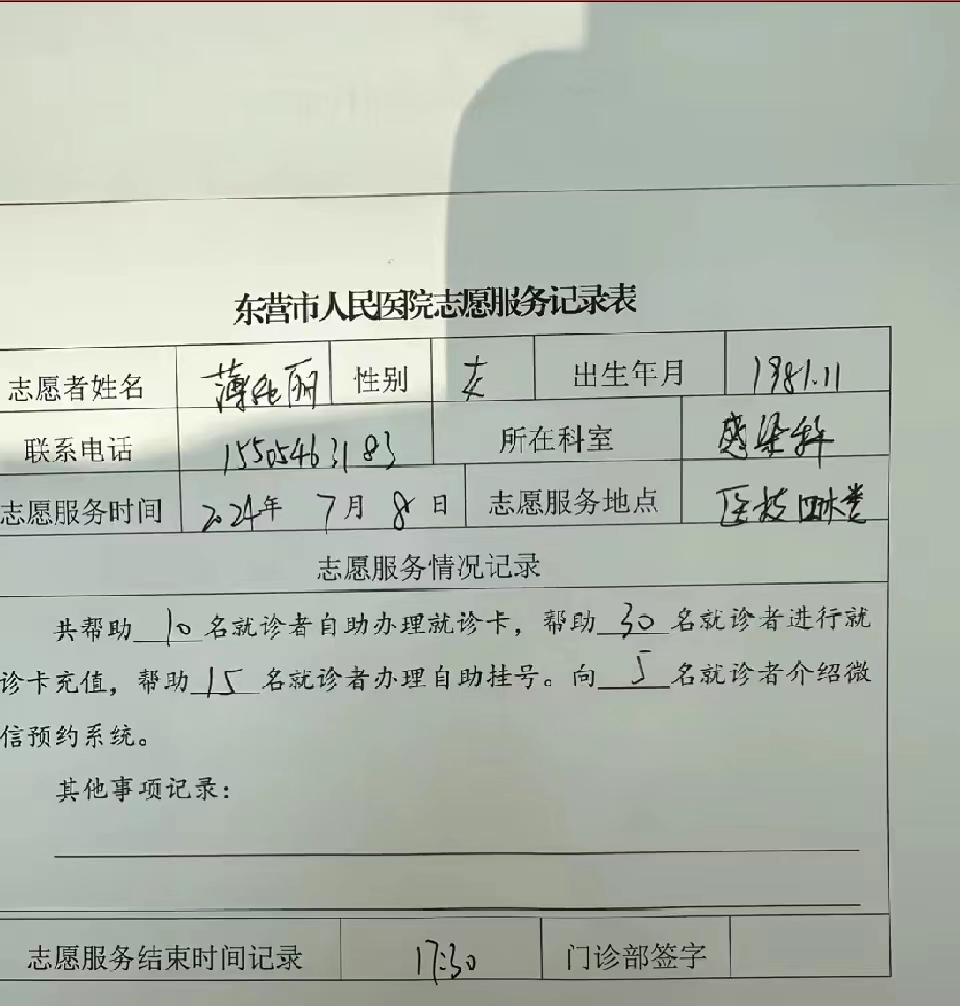 东营市人民医院志愿服务记录表
志愿者姓名 薄纯丽 性别 女 出生年月 1981.11
联系电话 15505463183 所在科室 感染科
志愿服务时间 2024年 7月 8日 志愿服务地点 医技
志愿服务情况记录
共帮助10名就诊者自助办理就诊卡，帮助30名就诊者进行就
诊卡充值，帮助15名就诊者办理自助挂号。向5名就诊者介绍微
信预约系统。
其他事项记录：
志愿服务结束时间记录 17:30 门诊部签字